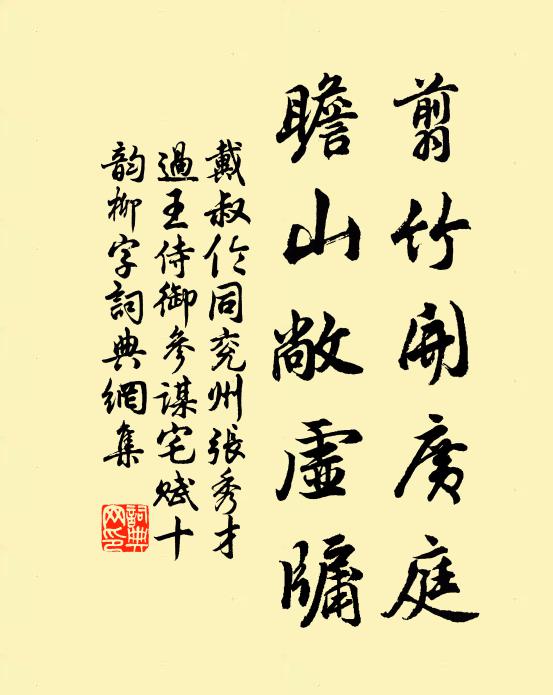 翦竹開廣庭
瞻山敞虛牖
戴叔倫同兖州張秀才
過王侍御參謀宅賦十
韵柳字詞典網集
詞典
网印